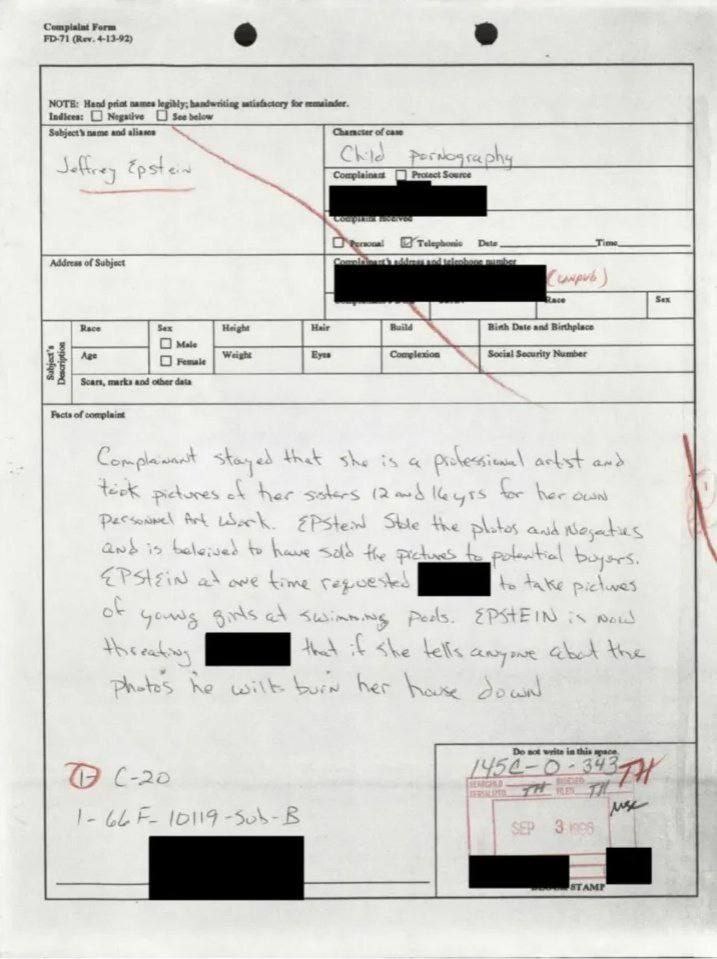 Complaint Form
FD-71 (Rev. 4-13-92)
NOTE: Hand print names legibly; handwriting satisfactory for remainder.
Indices: Negative See below
Subject's name and aliases
Jeffrey Epstein
Character of case
Child Pornography
Complainant Protect Source
Complaint received
Personal Telephonic Date Time
Address of Subject
Complainant's address and telephone number
(unpub)
Race Sex
Subject's Description
Race
Sex
Male
Female
Height
Hair
Build
Birth Date and Birthplace
Age
Weight
Eyes
Complexion
Social Security Number
Scars, marks and other data
Facts of complaint
Complainant stayed that she is a professional artist and
took pictures of her sisters 12 and 16 yrs for her own
personnel Art Work. EPStein Stole the photos and Negaties
and is beleived to have sold the pictures to potential buyers.
EPSTEIN at one time requested to take pictures
of young girls at swimming pools. EPSTEIN is now
threating that if she tells anyone about the
photos he will burn her house down
1- C-20
1-66F-10119-Sub-B
Do not write in this space.
145C-0-343
TH
SEARCHED INDEXED
SERIALIZED TH FILED TH
SEP 3 1996
STAMP